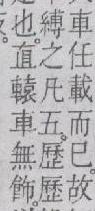 車任載而已。故
縛之凡五。歷歷
也。直轅車無飾。